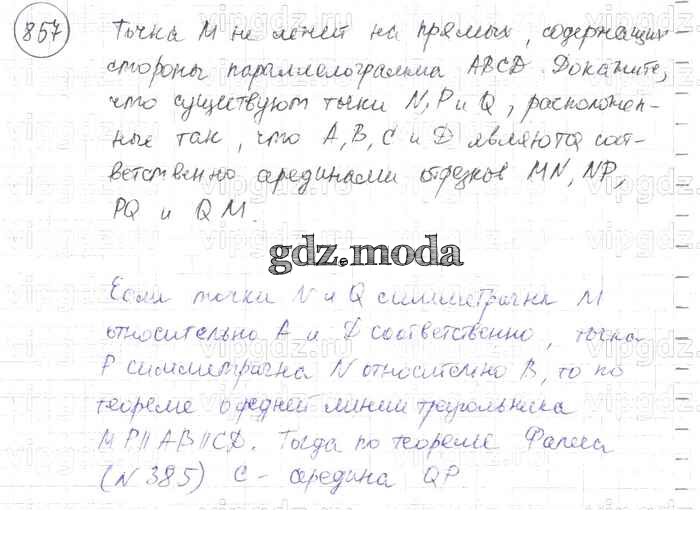 857
Точка M не лежит на прямых, содержащих
стороны параллелограмма ABCD. Докажите,
что существуют точки N, P и Q, расположен-
ные так, что A, B, C и D являются соот-
ветственно срединами отрезков MN, NP,
PQ и QM.
gdz.moda
Если точки N и Q симметрична M
относительно A и D соответственно, точка
P симметрична N относительно B, то по
теореме о средней линии треугольника
MP || AB || CD. Тогда по теореме Фалеса
(N 385) C - средина QP.